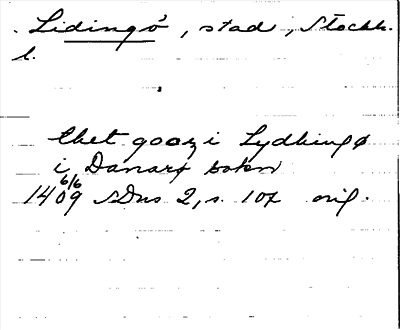 Lidingö, stad, Stockh.
l.
thet gooz i Lydhingø
i Danarø sokn
6/6
1409 SDns 2, s. 107 orig.